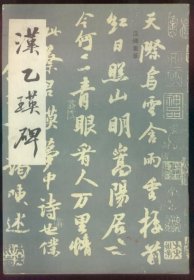 漢乙瑛碑
天際烏雲含雨重樓前
紅日照山明嵩陽居士
今何在青眼看人萬里情
此蔡君謨夢中詩也僕